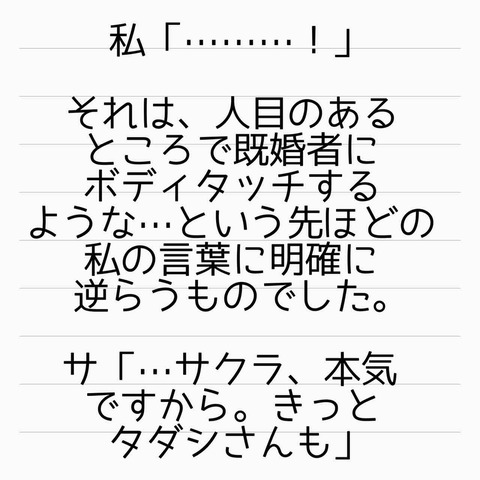 私「………！」
それは、人目のある
ところで既婚者に
ボディタッチする
ような…という先ほどの
私の言葉に明確に
逆らうものでした。
サ「…サクラ、本気
ですから。きっと
タダシさんも」